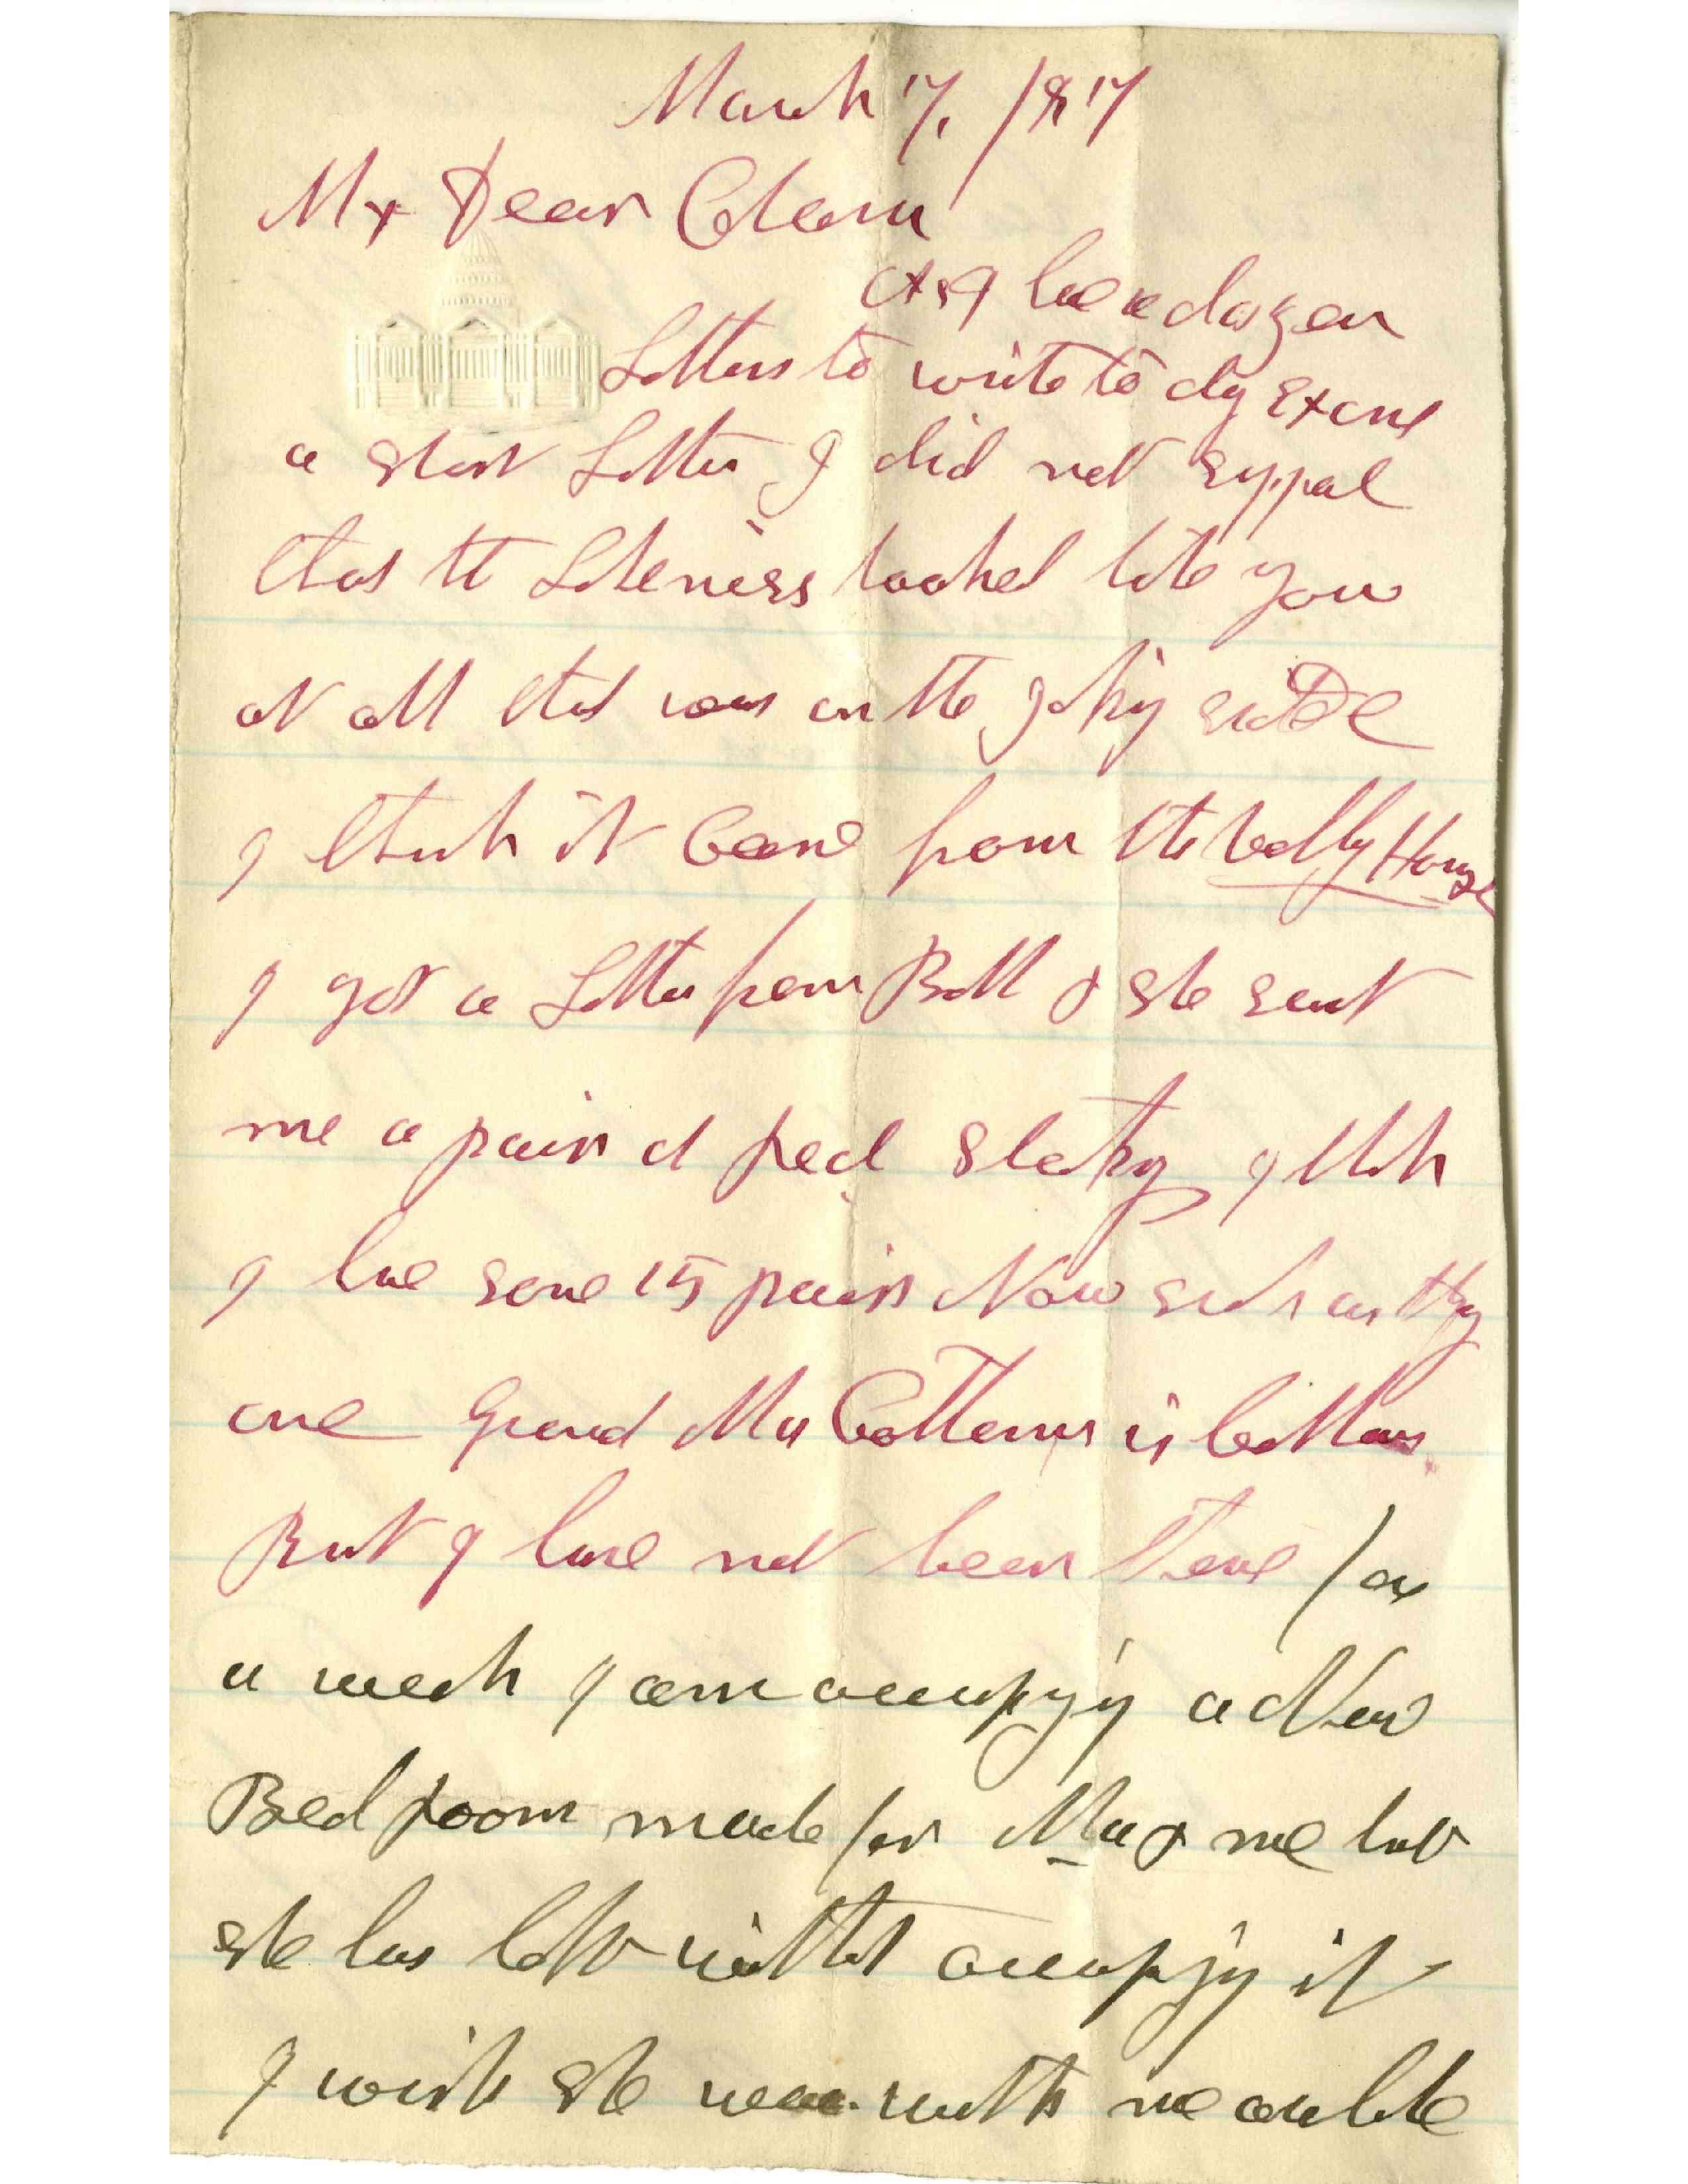 March 7, 1877
My Dear Clem
As I have a dozen
Letters to write to day Excuse
a short Letter I did not suppose
that the Likeness looked like you
at all that was on the joking side
I think it Came from the
I got a Letter from Bell & she sent
me a pair of Red I think
I have some 15 pairs Now
one Grand Ma Cottems is better
But I have not been there for
a week I am occupying a New
Bed Room made for Ma & me but
she has left without occupying it
I wish she was with me